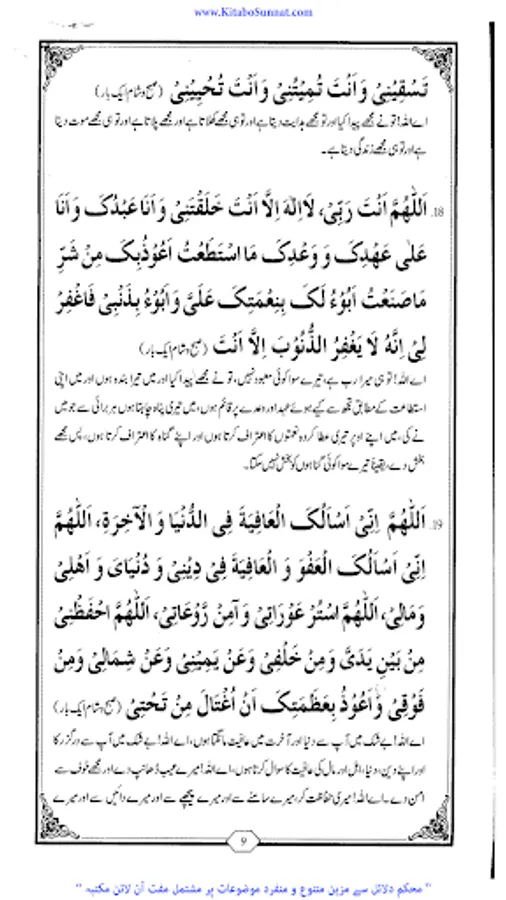 www.KitaboSunnat.com
تَسْقِیْنِیْ وَاَنْتَ تُمِیْتُنِیْ وَاَنْتَ تُحْیِیْنِیْ (صبح و شام ایک بار)
اے اللہ! تو نے مجھے پیدا کیا اور تو مجھے ہدایت دیتا ہے اور تو ہی مجھے کھلاتا ہے اور مجھے پلاتا ہے اور تو ہی مجھے موت دیتا
ہے اور تو ہی مجھے زندگی دیتا ہے۔
18. اَللّٰهُمَّ اَنْتَ رَبِّیْ، لَا اِلٰهَ اِلَّا اَنْتَ خَلَقْتَنِیْ وَاَنَا عَبْدُکَ وَاَنَا
عَلٰی عَهْدِکَ وَ وَعْدِکَ مَا اسْتَطَعْتُ اَعُوْذُبِکَ مِنْ شَرِّ
مَاصَنَعْتُ اَبُوْءُ لَکَ بِنِعْمَتِکَ عَلَیَّ وَاَبُوْءُ بِذَنْبِیْ فَاغْفِرْ
لِیْ اِنَّهٗ لَا یَغْفِرُ الذُّنُوْبَ اِلَّا اَنْتَ (صبح و شام ایک بار)
اے اللہ! تو ہی میرا رب ہے، تیرے سوا کوئی معبود نہیں، تو نے مجھے پیدا کیا اور میں تیرا بندہ ہوں اور میں اپنی
استطاعت کے مطابق تجھ سے کیے ہوئے عہد اور وعدے پر قائم ہوں، میں تیری پناہ چاہتا ہوں ہر برائی سے جو میں
نے کی، میں اپنے اوپر تیری عطا کردہ نعمتوں کا اعتراف کرتا ہوں اور اپنے گناہ کا اعتراف کرتا ہوں، پس مجھے
بخش دے، یقیناً تیرے سوا کوئی گناہوں کو بخش نہیں سکتا۔
19. اَللّٰهُمَّ اِنِّیْ اَسْاَلُکَ الْعَافِیَةَ فِی الدُّنْیَا وَ الْاٰخِرَةِ، اَللّٰهُمَّ
اِنِّیْ اَسْاَلُکَ الْعَفْوَ وَ الْعَافِیَةَ فِیْ دِیْنِیْ وَ دُنْیَایَ وَ اَهْلِیْ
وَمَالِیْ، اَللّٰهُمَّ اسْتُرْ عَوْرَاتِیْ وَاٰمِنْ رَّوْعَاتِیْ، اَللّٰهُمَّ احْفَظْنِیْ
مِنْ بَیْنِ یَدَیَّ وَمِنْ خَلْفِیْ وَعَنْ یَمِیْنِیْ وَعَنْ شِمَالِیْ وَمِنْ
فَوْقِیْ وَاَعُوْذُ بِعَظَمَتِکَ اَنْ اُغْتَالَ مِنْ تَحْتِیْ (صبح و شام ایک بار)
اے اللہ! بے شک میں آپ سے دنیا اور آخرت میں عافیت مانگتا ہوں، اے اللہ! بے شک میں آپ سے درگزر کا
اور اپنے دین، دنیا، اہل اور مال کی عافیت کا سوال کرتا ہوں، اے اللہ! میرے عیب ڈھانپ دے اور مجھے خوف سے
امن دے۔ اے اللہ! میری حفاظت کر، میرے سامنے سے اور میرے پیچھے سے اور میرے دائیں سے اور میرے
9
" محکم دلائل سے مزین متنوع و منفرد موضوعات پر مشتمل مفت آن لائن مکتبہ "